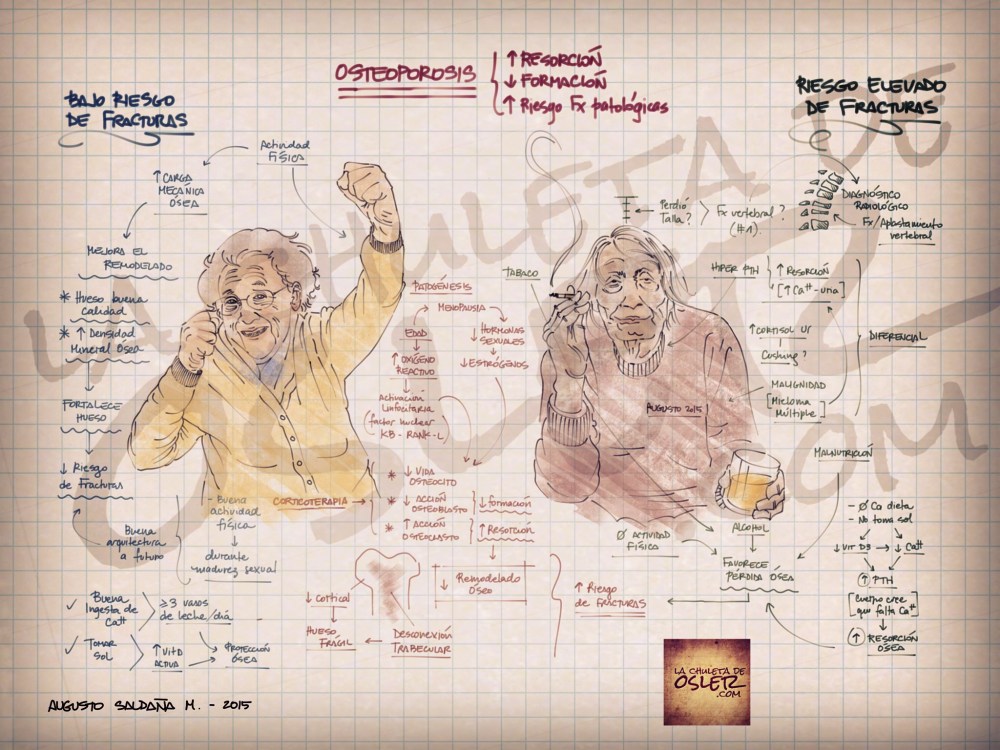 OSTEOPOROSIS
↑ RESORCIÓN
↓ FORMACIÓN
↑ Riesgo Fx patológicas
BAJO RIESGO
DE FRACTURAS
Actividad
FÍSICA
↑ CARGA
MECÁNICA
ÓSEA
MEJORA EL
REMODELADO
* Hueso buena
calidad
* ↑ Densidad
Mineral Ósea
FORTALECE
HUESO
↓ Riesgo
de Fracturas
Buena
arquitectura
a futuro
- Buena
actividad
física
durante
madurez sexual
✓ Buena
Ingesta de
Ca++
≥3 vasos
de leche/día
✓ TOMAR
SOL
↑ Vit D
ACTIVA
PROTECCIÓN
ÓSEA
PATOGÉNESIS
MENOPAUSIA
EDAD
↑ OXÍGENO
REACTIVO
Activación
Linfocitaria
factor nuclear
KB - RANK-L
↓ HORMONAS
SEXUALES
↓ ESTRÓGENOS
CORTICOTERAPIA
* ↓ VIDA
OSTEOCITO
* ↓ ACCIÓN
OSTEOBLASTO
* ↑ ACCIÓN
OSTEOCLASTO
↓ formación
↑ Resorción
↓ Remodelado
Óseo
↓ cortical
HUESO
FRÁGIL
DESCONEXIÓN
TRABECULAR
↑ Riesgo
de FRACTURAS
RIESGO ELEVADO
DE FRACTURAS
Perdió
Talla?
Fx vertebral?
(#1)
DIAGNÓSTICO
RADIOLÓGICO
Fx/Aplastamiento
vertebral
TABACO
HIPER PTH
↑ Resorción
[↑ Ca++-uria]
↑ CORTISOL UR
Cushing?
MALIGNIDAD
[Mieloma
Múltiple]
DIFERENCIAL
AUGUSTO 2015
MALNUTRICIÓN
- Ø Ca dieta
- No toma sol
↓ VIT D3 → ↓ Ca++
↑ PTH
[Cuerpo cree
que falta Ca++]
↑ RESORCIÓN
ÓSEA
Ø ACTIVIDAD
FÍSICA
ALCOHOL
FAVORECE
PÉRDIDA ÓSEA
LA CHULETA DE
OSLER
.COM
AUGUSTO SALDAÑA M. - 2015
LA CHULETA DE
OSLER
.COM